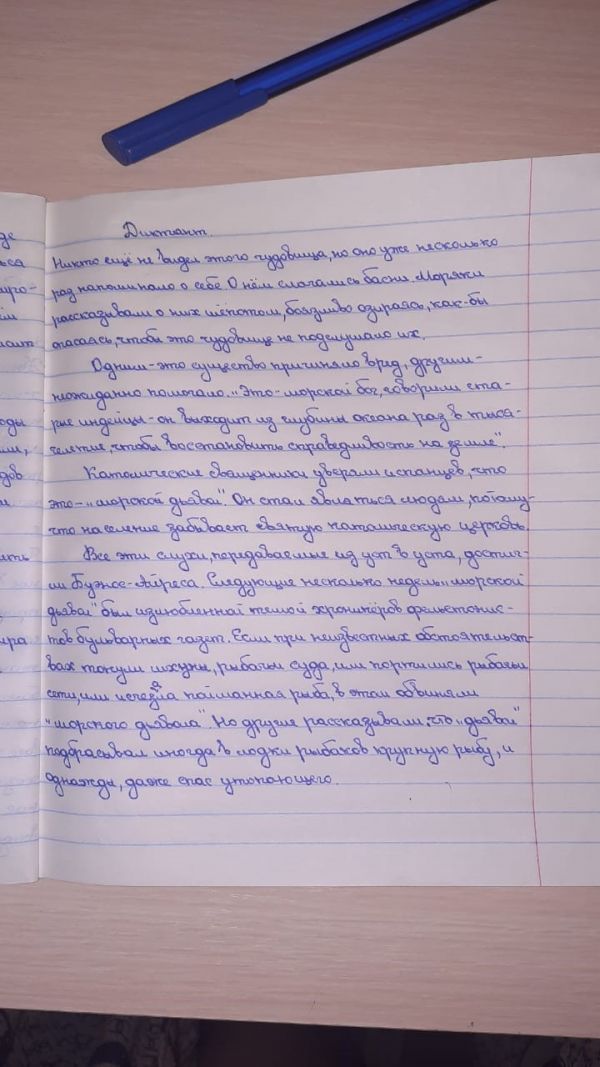 де
ься
Диктант.
Никто ещё не видел этого чудовища, но оно уже несколько
раз напоминало о себе. О нём слагались басни. Моряки
рассказывали о них шёпотом, боязливо озираясь, как-бы
опасаясь, чтобы это чудовище не подслушало их.
Одним-это существо причиняло вред, другим-
неожиданно помогало. „Это-морской бог, говорили ста-
рые индейцы-он выходит из глубины океана раз в тыся-
челетие, чтобы восстановить справедливость на земле".
Католические священники уверяли испанцев, что
это-„морской дьявол". Он стал являться людям, потому-
что население забывает святую католическую церковь.
Все эти слухи, передаваемые из уст в уста, достиг-
ли Буэнос-Айреса. Следующие несколько недель „морской
дьявол" был излюбленной темой хроникёров фельетонис-
тов бульварных газет. Если при неизвестных обстоятельст-
вах тонули шхуны, рыбачьи суда, или портились рыбачьи
сети, или исчезала пойманная рыба, в этом обвиняли
„морского дьявола". Но другие рассказывали, что „дьявол"
подбрасывал иногда в лодки рыбаков крупную рыбу, и
однажды, даже спас утопающего.